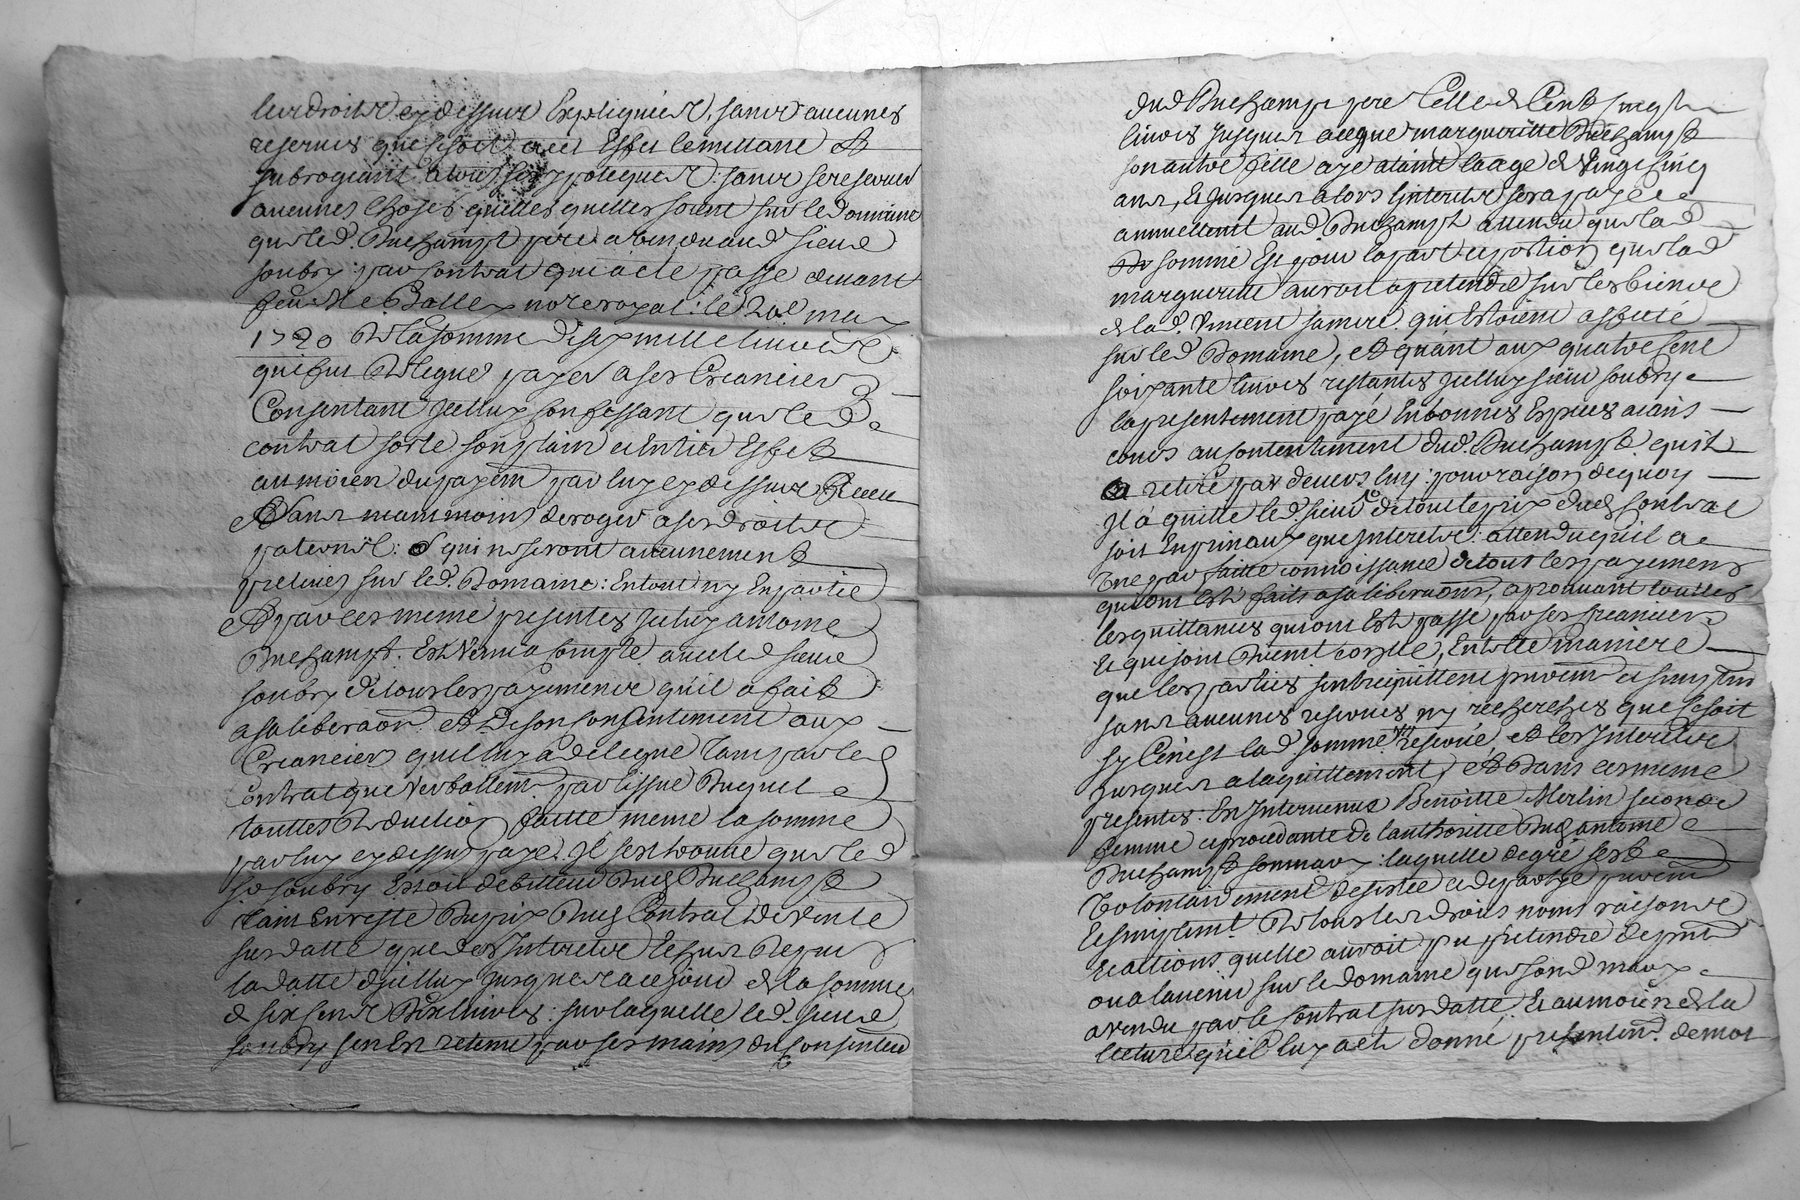 leurs droits cydessus Expliquées, sans aucunes
reserves que ce soit a cet Effet le mettant et
subrogeant a tous ses ypoteques: sans se reserver
aucunes choses quelles quelles soient sur le Domaine
que led. Duchampt pere a vendu aud sieur
soubry par contrat qui a eté passé devant
feu Me Balley nore royal: le 20e may
1720 de la somme de six mille livres
qui fut deleguée payer a ses Creanciers
Consentant jcelluy confessant que led
contrat sorte son plain et entier Effet
au moien du payemt par luy cydessus Receu
Et sans neanmoins deroger a ses droits
paternels: qui ne seront aucunement
pretires sur led. Domaine: En tout ny En partie
Et par ces meme presentes jceluy antoine
Duchampt. Est venu a Compte avec led sieur
soubry de tous les payements qu'il a fait
a sa liberaon Et De son Consentement aux
Creanciers quil luy a delegué Tant par led
Contrat que verballemt. par l'issue Duquel
touttes Deduction faitte meme la somme
par luy cydessus payé. Jl sest trouvé que led
sr soubry Estoit debitteur Dud Duchampt
Tant En reste Du prix Dud Contrat de vente
susdatté que des Jnterets Echus Depuis
la datte djcelluy jusques a ce jour de la somme
de six cent Dix livres: sur laquelle led. sieur
soubry sen Est retenu par ses mains du consentemt
dud Duchampt pere Celle de Cent cinq
livres jusques a ce que margueritte Duchampt
son autre fille aye ataint laage de Vingt cinq
ans, Et jusques alors l'jnterets sera payée
annuellemt aud Duchampt attendu que lad
somme Est pour la part et portion que lad
margueritte auroit a pretendre sur les biens
de lad. Vincent sa mere qui Estoient affecté
sur led Domaine, et quant aux quatre cent
soixante livres restantes jcelluy sieur soubry
la presentement payé En bonnes Especes aians
cours au contentement dud. Duchampt qui
a retiré par devers luy: pour raison de quoy
Jl a quitté led. sieur de tout le prix dud Contrat
soit En prinaux que jnterets: attendu qu'il a
Une parfaitte connoissance de tous les payements
qui ont Esté faits a sa liberaon, aprouvant touttes
les quittances qui ont Esté passé par ses Creanciers
Et que sont Duemt, En telle maniere
que les parties sentrequittent puremt et simplemt
sans aucunes reserves ny recherches que ce soit
sy Cenest lad somme reservé et les jnterets
jusques a laquittement, Et Dans ces meme
presentes. Est Jntervenue Benoitte Merlin seconde
femme et procedante de l'authoritté Dud antoine
Duchampt son mary: laquelle de gré sest
Volontairement desistée et departye puremt
Et simplemt De tous les droits noms raisons
Et actions quelle auroit pu pretendre de prnt
ou a lavenir sur le domaine que sond mary
a vendu par le contrat susdatté. Et au moien de la
lecture qu'il luy a eté donné presentemt. de mot